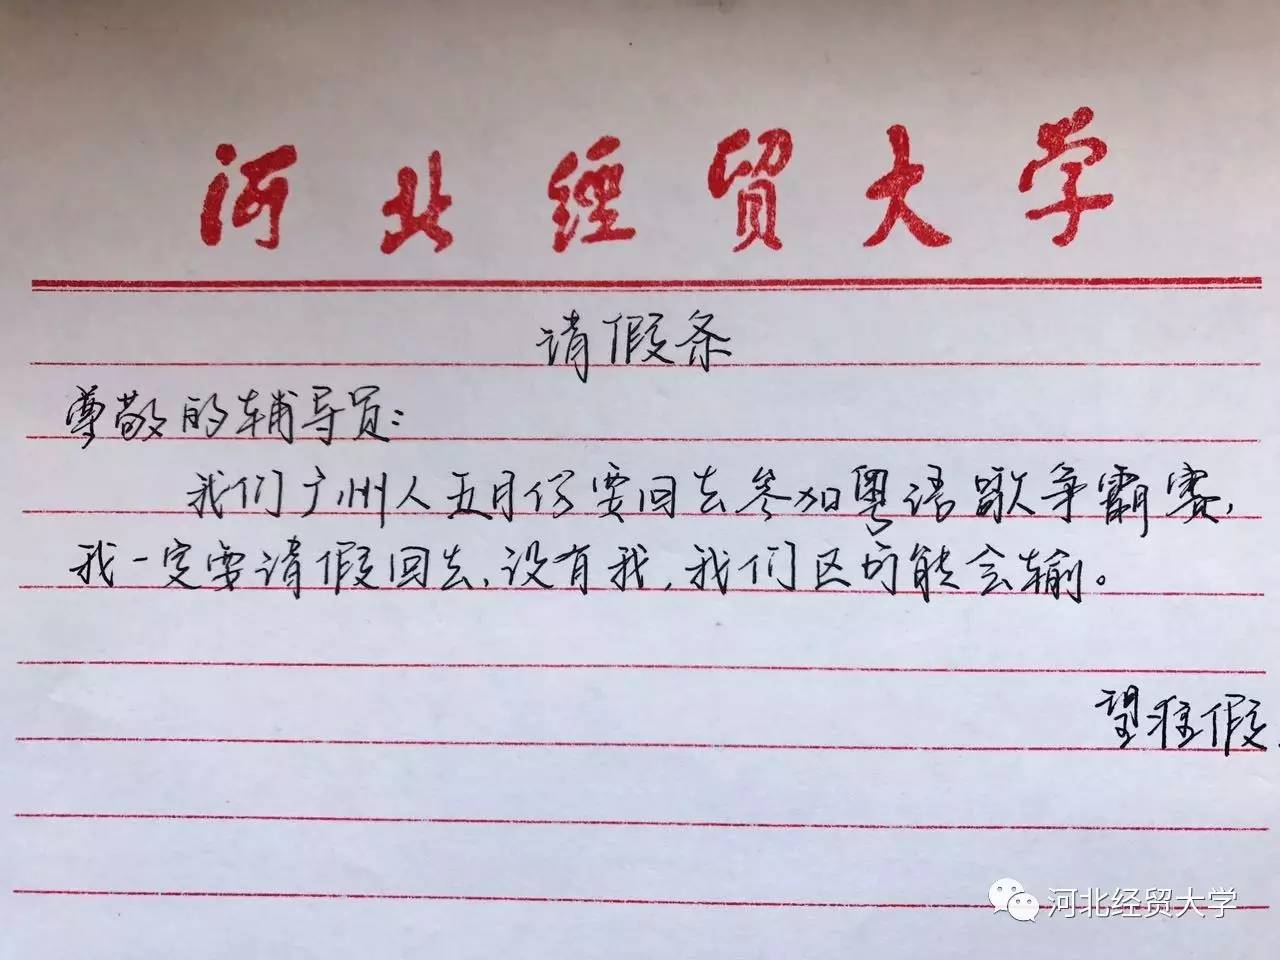 河北经贸大学
请假条
尊敬的辅导员：
我们广州人五月份要回去参加粤语歌争霸赛，
我一定要请假回去，没有我，我们区可能会输。
望准假.
河北经贸大学